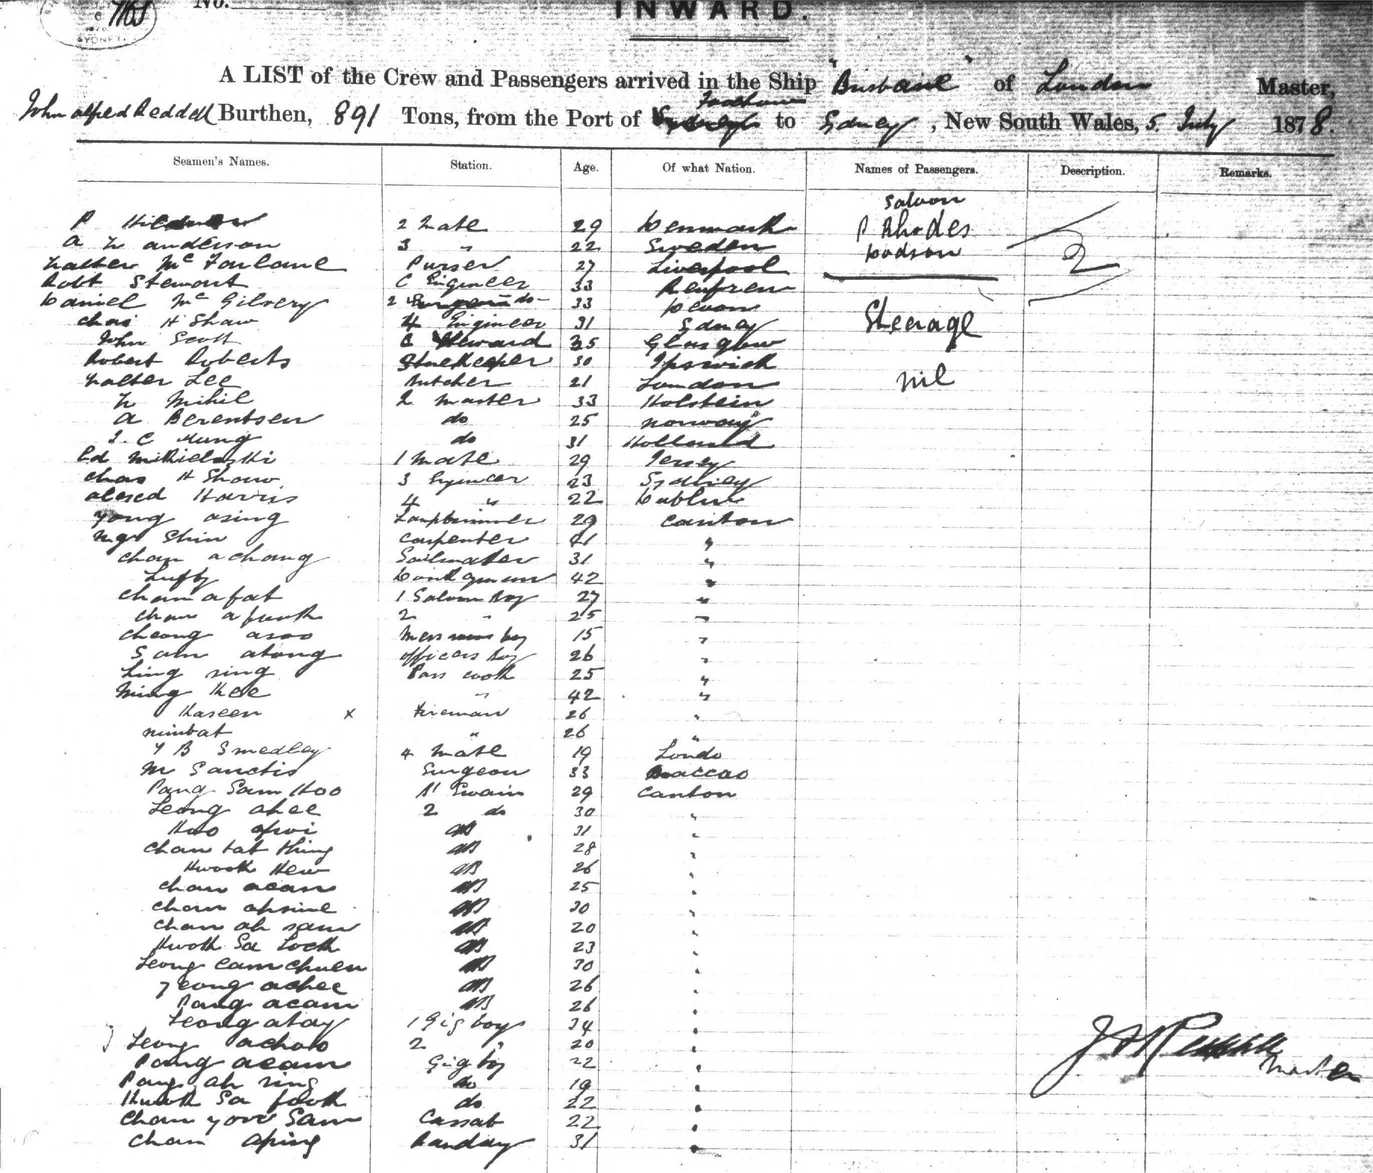 No.
INWARD.
A LIST of the Crew and Passengers arrived in the Ship "Brisbane" of London Master,
John Alfred Reddell Burthen, 891 Tons, from the Port of Foochow to Sydney, New South Wales, 5 July 1878.
Seamen's Names. Station. Age. Of what Nation. Names of Passengers. Description. Remarks.
Saloon
P 2 Mate 29 Denmark P Rhodes
A W Anderson 3 " 22 Sweden Dodson 2
Walter McFarlane Purser 27 Liverpool
Robt Stewart C Engineer 33 Renfrew
Daniel McGilvery 2 do 33 Devon
Chas H Shaw 4 Engineer 31 Sydney Steerage
John Scott C Steward 35 Glasgow
Robert Roberts Storekeeper 30 Ipswich
Walter Lee Butcher 21 London nil
W Mihil 2 Master 33 Holstein
A Berentsen do 25 Norway
J. C Kung do 31 Holland
Ed 1 Mate 29 Jersey
Chas H Shaw 3 Engineer 23 Sydney
Harris 4 " 22 Dublin
Yong Asing Lamptrimmer 29 Canton
Ng Shin Carpenter 41 "
Chan Achong Sailmaker 31 "
42 "
Chan Afat 1 Saloon Boy 27 "
Chan Afookh 2 " 25 "
Cheong Asoo Mess room boy 15 "
Sam Atong Officers Boy 26 "
Ling Sing Pass cook 25 "
Ming Kee " 42 "
Haseen x Fireman 26 "
Nimbat " 26 "
Y B Smedley 4 Mate 19 Londo
M Sanctis Surgeon 33 Maccao
Pang Sam Hoo Bt Swain 29 Canton
Leong Ahee 2 do 30 "
Hoo Apoi AB 31 "
Chan Tat Hing AB 28 "
Kwook Hew AB 26 "
Chan Acan AB 25 "
Chan Ahsine AB 30 "
Chan Ah Sam AB 20 "
Kwok Sa Lock AB 23 "
Leong Cam Chuen AB 30 "
Yeong Achee AB 26 "
Pang Acam AB 26 "
Leong Atay 1 Gig boy 34 "
Leong Achow 2 " 20 "
Pang Acam Gig boy 22 "
Pang Ah Sing do 19 "
Kwok Sa Fook do 22 "
Chan Yow Sam Cassab 22 "
Chan Aping 31 "
J A Reddell
Master